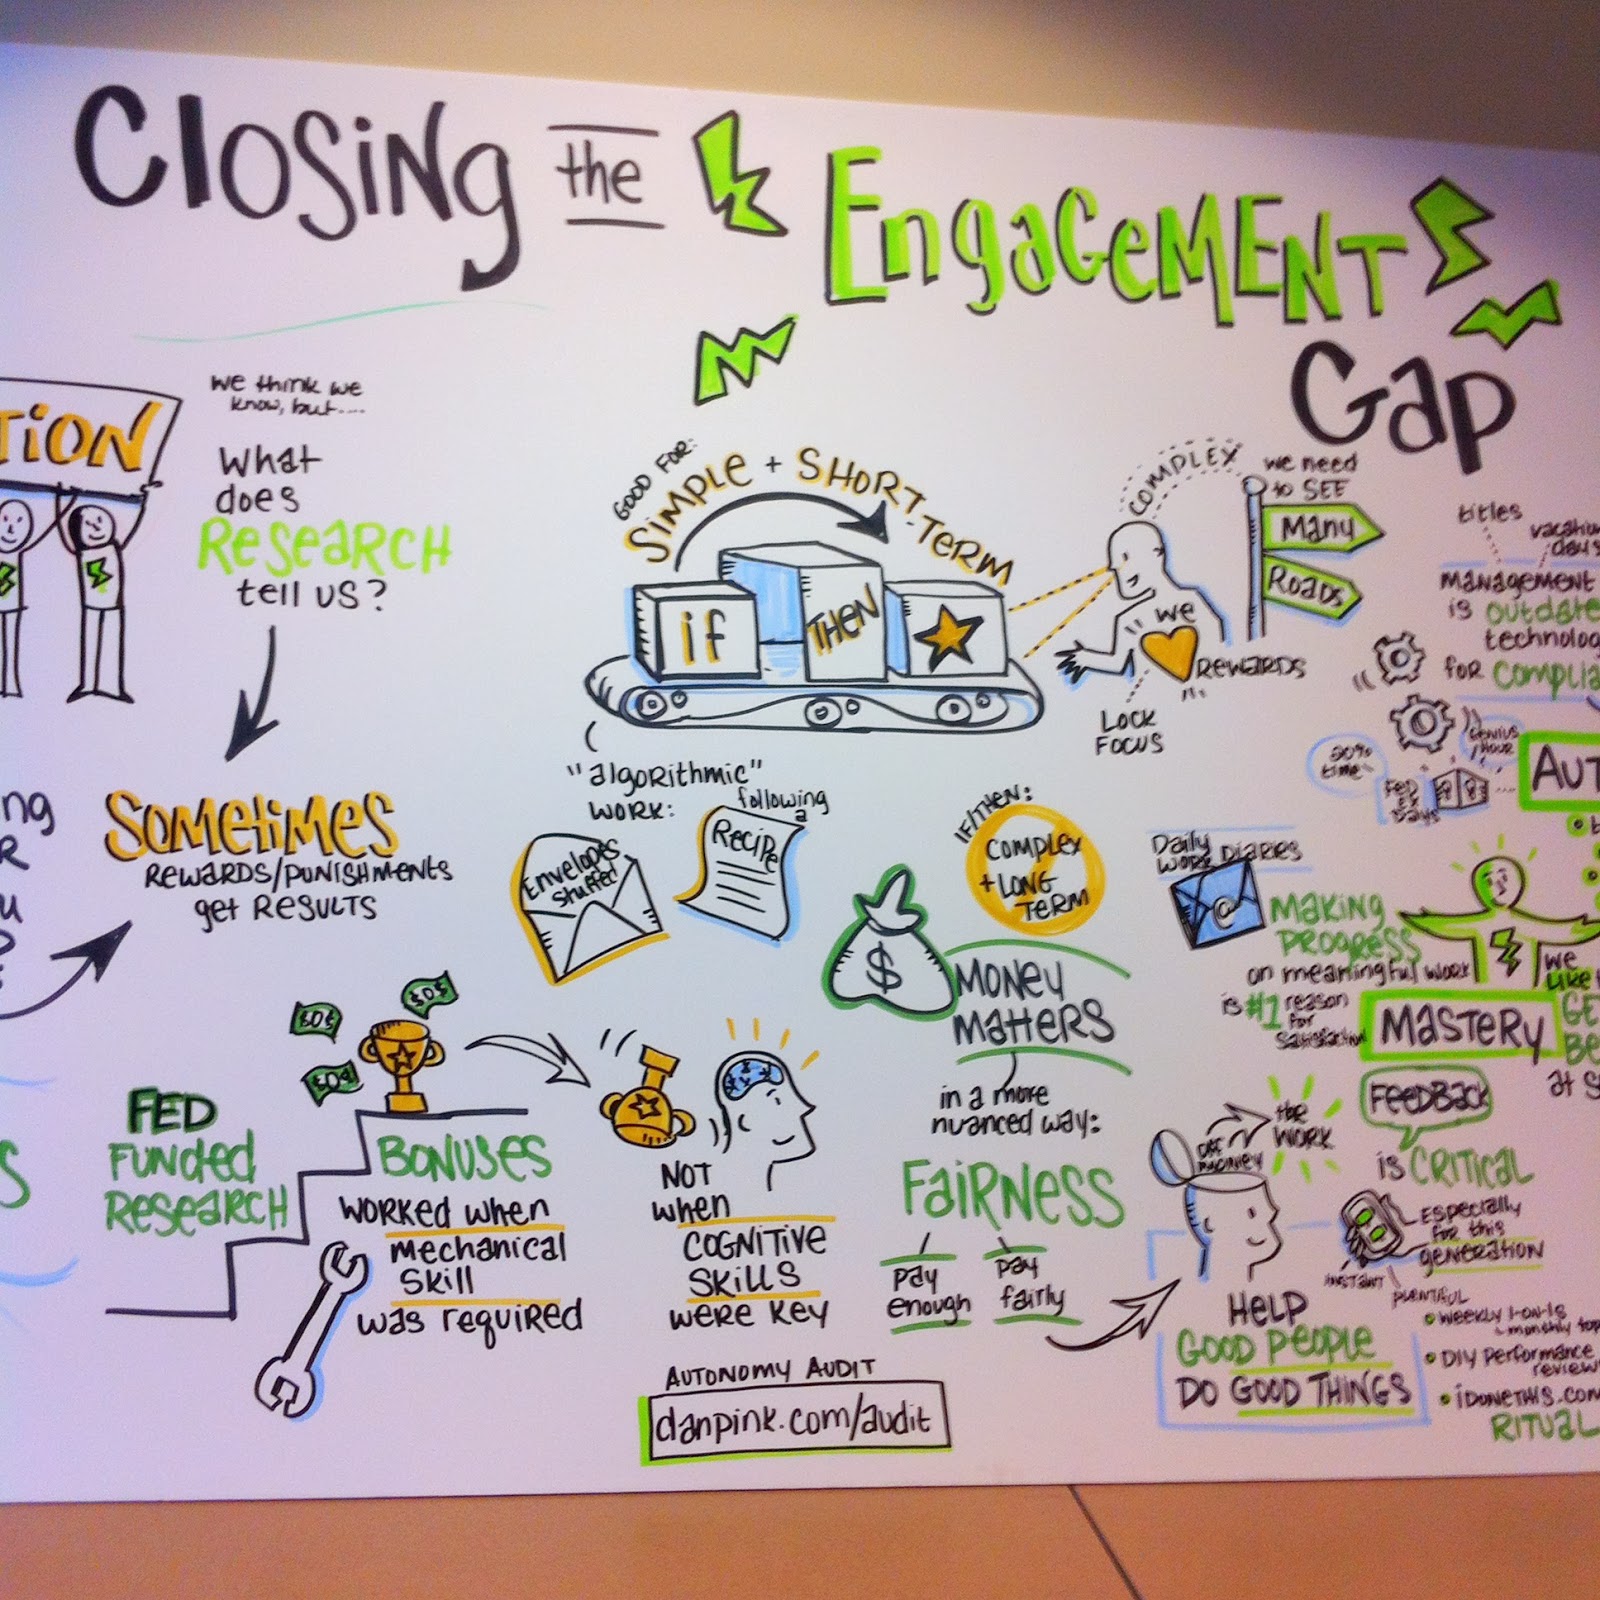 Closing the Engagement
Gap
TION
we think we
know, but....
What
does
Research
tell us?
Sometimes
Rewards/punishments
get results
ng
R
u
s
Fed
Funded
Research
$0$
$0$
Bonuses
worked when
mechanical
skill
was required
Not
when
cognitive
skills
were key
Autonomy Audit
danpink.com/audit
Good for:
Simple + Short-Term
if
THEN
"algorithmic"
work:
following
a
Recipe
Envelopes
stuffed
Complex
we need
to see
Many
Roads
"we
Rewards"
Lock
Focus
If/Then:
Complex
+ Long
Term
$
Money
Matters
in a more
nuanced way:
Fairness
pay
enough
pay
fairly
titles
management
is outdate
technolog
for complia
20%
time
Genius
Hour
Fed
Ex
Days
AUT
Daily
Work Diaries
@
Making
Progress
on meaningful work
is #1 reason
for
satisfaction
we
like
Mastery
Ge
Be
at s
Feedback
is critical
Especially
for this
generation
instant
plentiful
off money
the
work
Help
Good people
do good things
weekly 1-on-1s
monthly top
DIY Performance
review
iDoneThis.com
Ritual